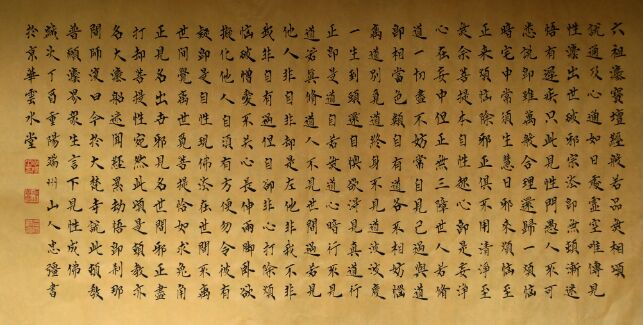 六祖灋寶壇經般若品無相頌
說通及心通如日處虛空唯傳見
性灋出世破邪宗法即無頓漸迷
悟有遲疾只此見性門愚人不可
悉說即雖萬般合理還歸一煩惱
暗宅中常須生慧日邪來煩惱至
正來煩惱除邪正俱不用清淨至
無餘菩提本自性起心即是妄淨
心在妄中但正無三障世人若修
道一切盡不妨常自見己過與道
即相當色類自有道各不相妨惱
離道別覓道終身不見道波波度
一生到頭還自懊欲得見真道行
正即是道自若無道心暗行不見
道若真修道人不見世間過若見
他人非自非卻是左他非我不非
我非自有過但自卻非心打除煩
惱破憎愛不關心長伸兩腳臥欲
擬化他人自須有方便勿令彼有
疑即是自性現佛法在世間不離
世間覺離世覓菩提恰如求兔角
正見名出世邪見名世間邪正盡
打卻菩提性宛然此頌是頓教亦
名大灋船迷聞經累劫悟即剎那
間師復曰今於大梵寺說此頓教
普願灋界眾生言下見性成佛
歲次丁酉重陽瑞州山人忠疆書
於京華雲水堂